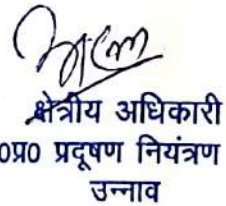 क्षेत्रीय अधिकारी
0प्र0 प्रदूषण नियंत्रण
उन्नाव